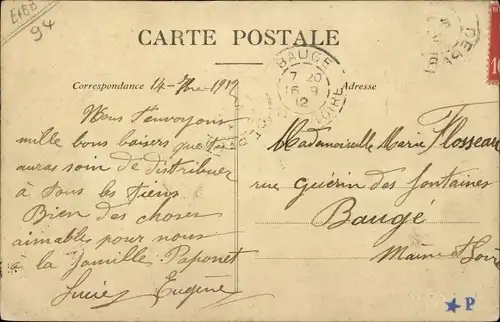 E+BB
94
CARTE POSTALE
BAUGE
7 20
16 9
12
LOIRE
10
Correspondance 14-7bre 1912
Adresse
Nous t'envoyons
mille bons baisers que tu
auras soin de distribuer
à tous les tiens
Bien des choses
aimables pour nous
à la famille Paponet
Lucie Eugène
Mademoiselle Marie Flosseau
rue Guérin des fontaines
Baugé
Maine & Loire
★P